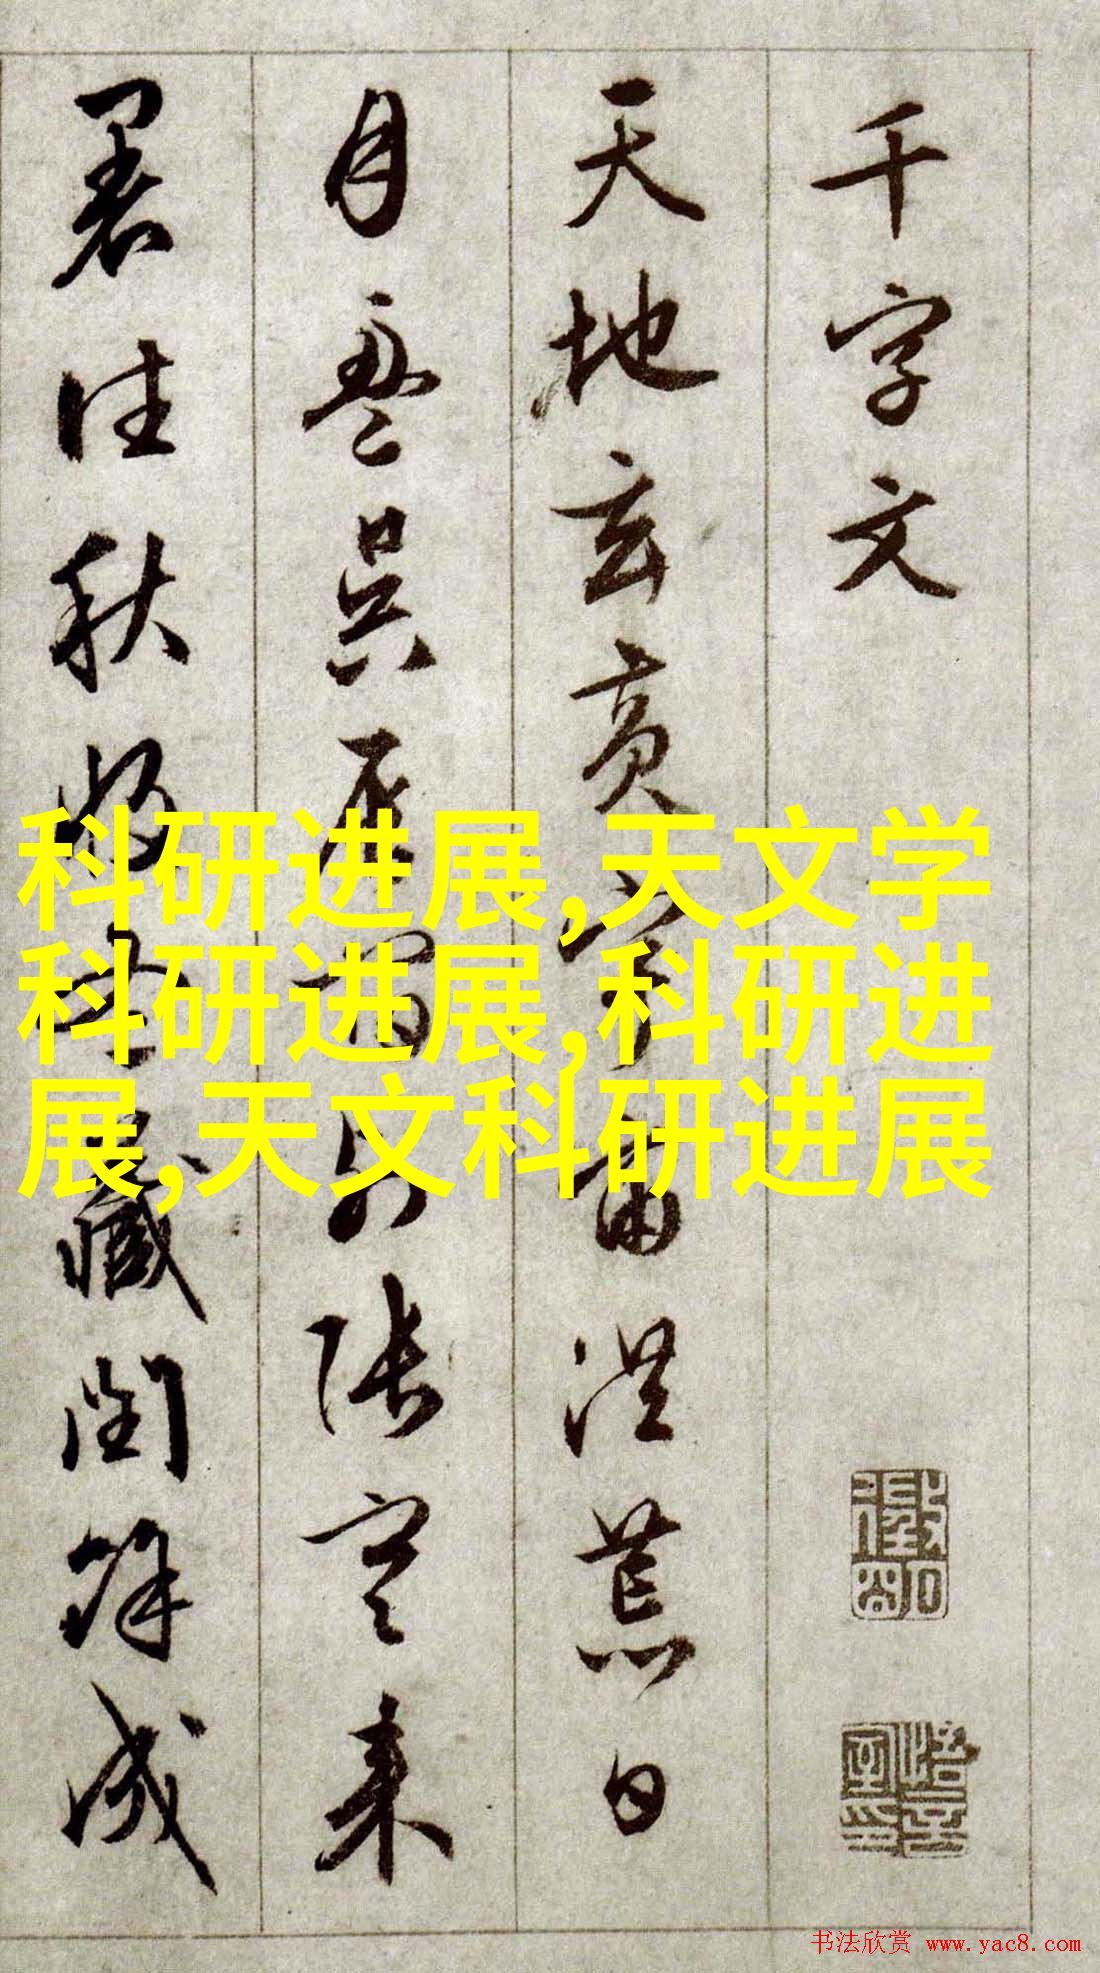 千字文
天地玄黄宇宙洪荒日
月盈昃辰宿列张寒来
暑往秋收冬藏闰余成
科研进展,天文学
科研进展,科研进
展,天文科研进展
书法欣赏 www.yac8.com